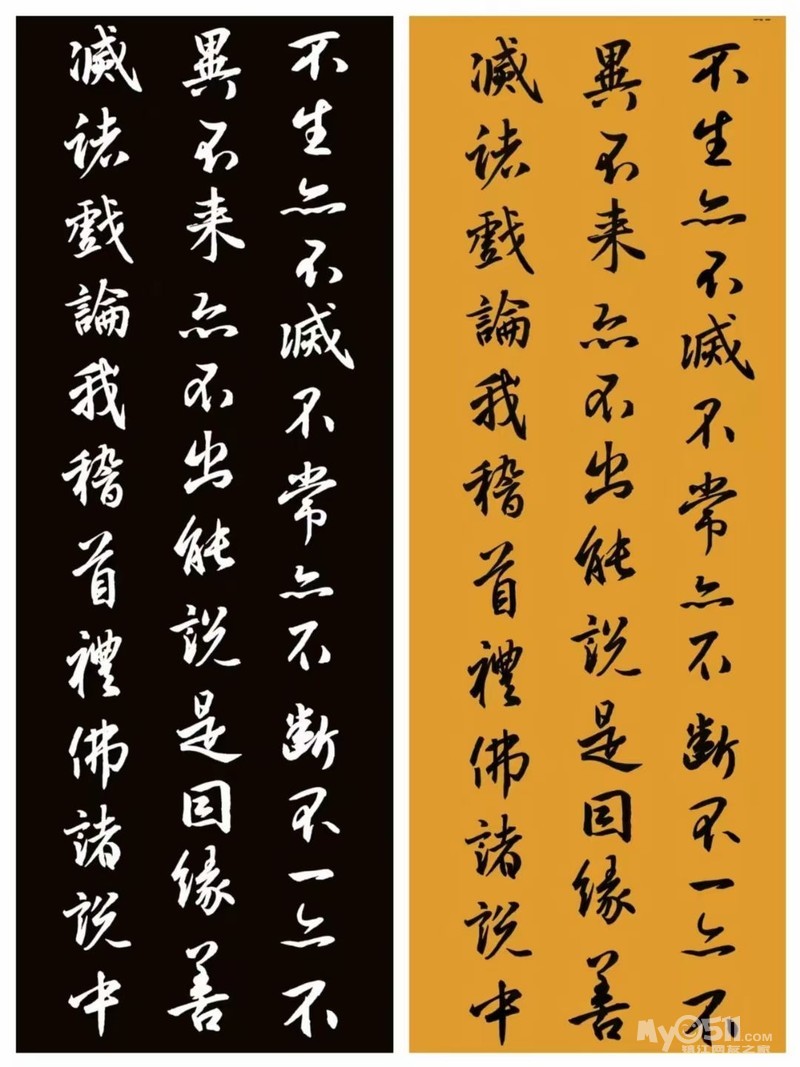 不生亦不滅不常亦不斷不一亦不
異不来亦不出能說是因緣善
滅諸戲論我稽首禮佛諸說中
不生亦不滅不常亦不斷不一亦不
異不来亦不出能說是因緣善
滅諸戲論我稽首禮佛諸說中
My0511.com
镇江网友之家